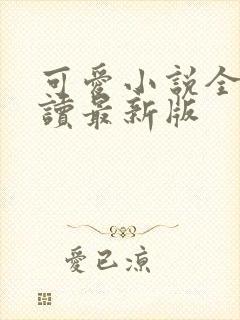 可愛小説全
讀最新版
愛已涼